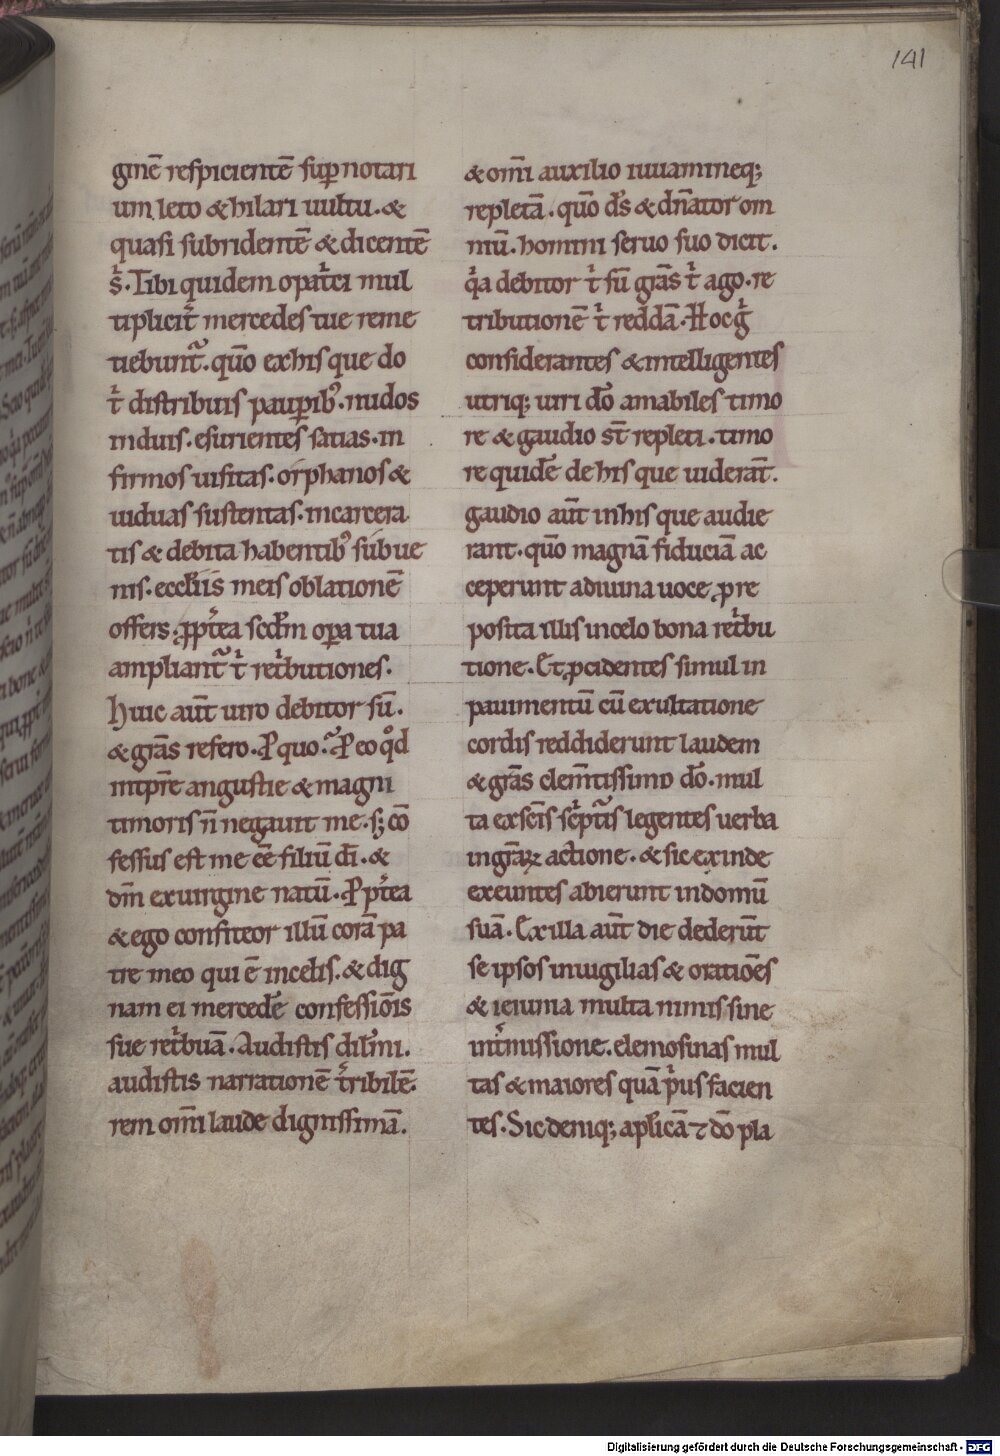 141
ginē respicientē sup notari
um leto & hilari uultu. &
quasi subridentē & dicentē
s̉. Tibi quidem o patͥci mul
tiplicit̉ mercedes tue reme
tiebunt᷑. quō ex his que do
t̉ distribuis paupib᾽. nudos
induis. esurientes satias. in
firmos uisitas. orphanos &
uiduas sustentas. incarcera
tis & debita habentib᾽ subue
nis. eccliis meis oblationē
offers. ꝓpt̉ea scdm̄ opa tua
ampliant᷑ t̉ ret̉butiones.
Huic aūt uiro debitor sū.
& grās refero. P quo.᷑ P eo qd̊
intp̄re angustie & magni
timoris n̄ negauit me. s; cō
fessus est me cē filiū di̅. &
dm̄ ex uirgine natū. Ppt̉ea
& ego confiteor illū corā pa
tre meo qui ē in celis. & dig
nam ei mercedē confessiōis
sue ret̉buā. Audistis dil̅mi.
audistis narrationē t̉ribilē.
rem om̄i laude dignissimā.
& om̄i auxilio iuuamineq;
repletā. quō ds̄ & dn̄ator om
niū. homini seruo suo dicit.
q̉a debitor t̉ sū grās t̉ ago. re
tributionē t̉ reddā. Hoc g̉
considerantes & intelligentes
utriq; uiri dō amabiles timo
re & gaudio st̄ repleti. timo
re quidē de his que uiderāt.
gaudio aūt in his que audie
rant. quō magnā fiduciā ac
ceperunt a diuina uoce ꝓ pre
posita illis in celo bona ret̉bu
tione. Et ꝓcidentes simul in
pauimentū cū exultatione
cordis reddiderunt laudem
& grās clem̄tissimo dō. mul
ta ex scīs sc̉pt᷑is legentes uerba
in grāꝝ actione. & sic exinde
exeuntes abierunt in domū
suā. Ex illa aūt die dederūt
se ipsos in uigilias & oratiōes
& ieiunia multa nimis sine
int̉missione. elemosinas mul
tas & maiores quā p̉us facien
tes. Sic deniq; aplicā ⁊ dō pla
Digitalisierung gefördert durch die Deutsche Forschungsgemeinschaft - DFG